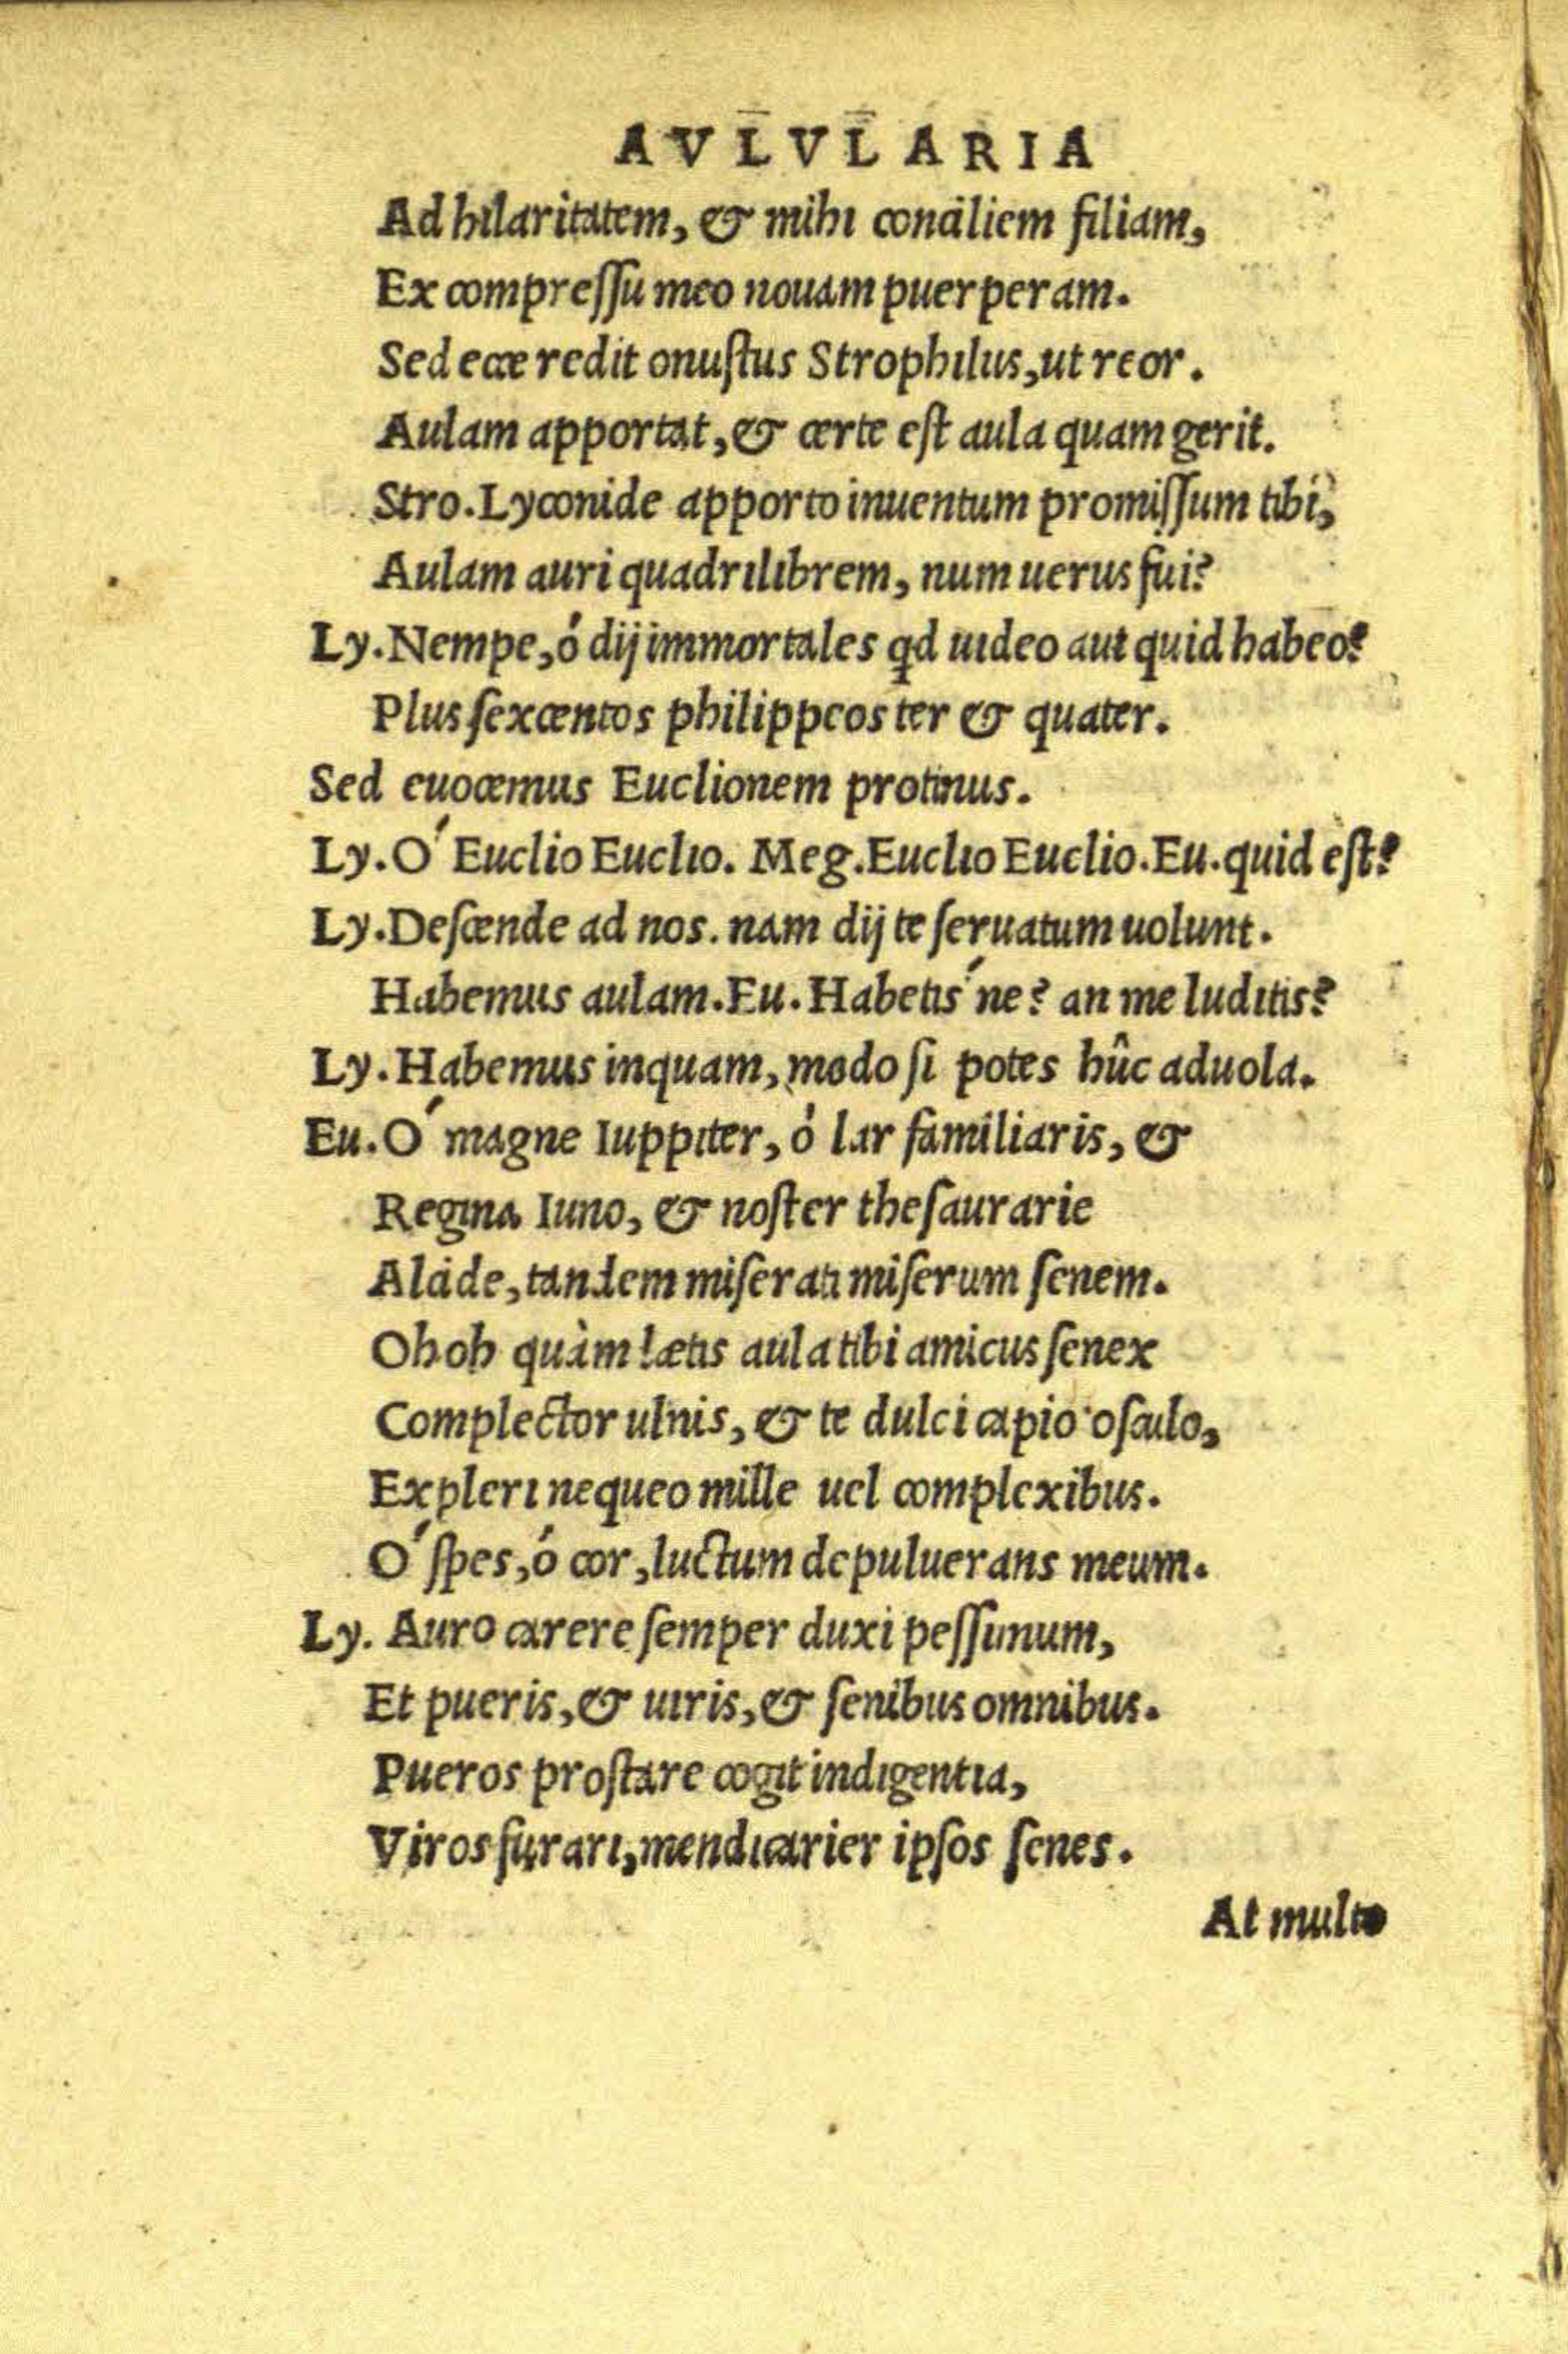 AVLVLARIA
Ad hilaritatem, & mihi conciliem filiam,
Ex compreſſu meo nouam puerperam.
Sed ecce redit onuſtus Strophilus, ut reor.
Aulam apportat, & certe eſt aula quam gerit.
Stro. Lyconide apporto inuentum promiſſum tibi,
Aulam auri quadrilibrem, num uerus fui?
Ly. Nempe, ó dij immortales qd uideo aut quid habeo?
Plus ſexcentos philippeos ter & quater.
Sed euocemus Euclionem protinus.
Ly. Ó Euclio Euclio. Meg. Euclio Euclio. Eu. quid eſt?
Ly. Deſcende ad nos. nam dij te ſeruatum uolunt.
Habemus aulam. Eu. Habetis´ne? an me luditis?
Ly. Habemus inquam, modo ſi potes hûc aduola.
Eu. Ó magne Iuppiter, ó lar familiaris, &
Regina Iuno, & noſter theſaurarie
Alcide, tandem miſerati miſerum ſenem.
Oh oh quàm lætis aula tibi amicus ſenex
Complector ulnis, & te dulci capio oſculo,
Expleri nequeo mille uel complexibus.
Ó ſpes, ó cor, luctum depuluerans meum.
Ly. Auro carere ſemper duxi peſſimum,
Et pueris, & uiris, & ſenibus omnibus.
Pueros proſtare cogit indigentia,
Viros furari, mendicarier ipſos ſenes.
At multo